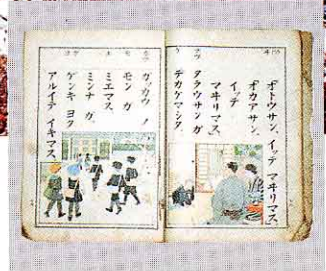 オトウサン、イッテ マヰリマス、
オカアサン、
イッテ
マヰリマス、
タラウサンガ
デカケマシタ、
ガッカウ ノ
モン ガ
ミエマス、
ミンナ ガ、
ゲンキ ヨク
アルイテ イキマス、